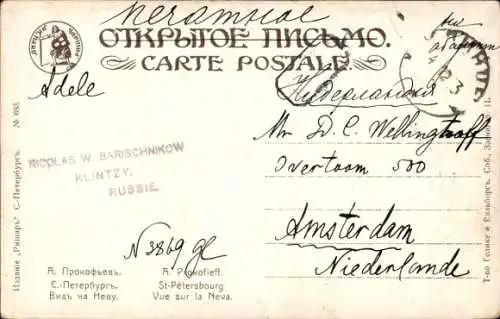 Печатное
ОТКРЫТОЕ ПИСЬМО.
CARTE POSTALE.
Adele
Нидерландия
Mr D. C. Wellingtroff
Overtoom 500
Amsterdam
Niederlande
NICOLAS W. BARISCHNIKOW
KLINTZY.
RUSSIE.
N 3869 gl
А. Прокофьевъ.
С.-Петербургъ.
Видъ на Неву.
A. Prokofieff.
St-Pétersbourg
Vue sur la Neva.
Изданіе „Ришаръ" С.-Петербургъ. № 693.
Т-во Голике и Вильборгъ. Спб. Звениг. 11.